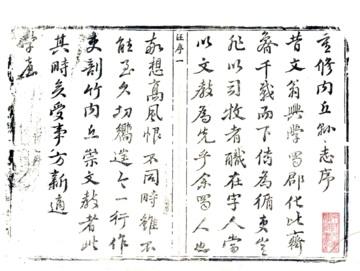 重修内丘縣志序
昔文翁興學蜀郡化比齊
魯千載而下傳為循吏豈
非以司牧者職在字人當
以文教為先乎余蜀人也
序一
想高風恨不同時雖不
能至久切嚮一行作
吏剖竹内丘崇文教者此
其時矣受事方新適
學宮